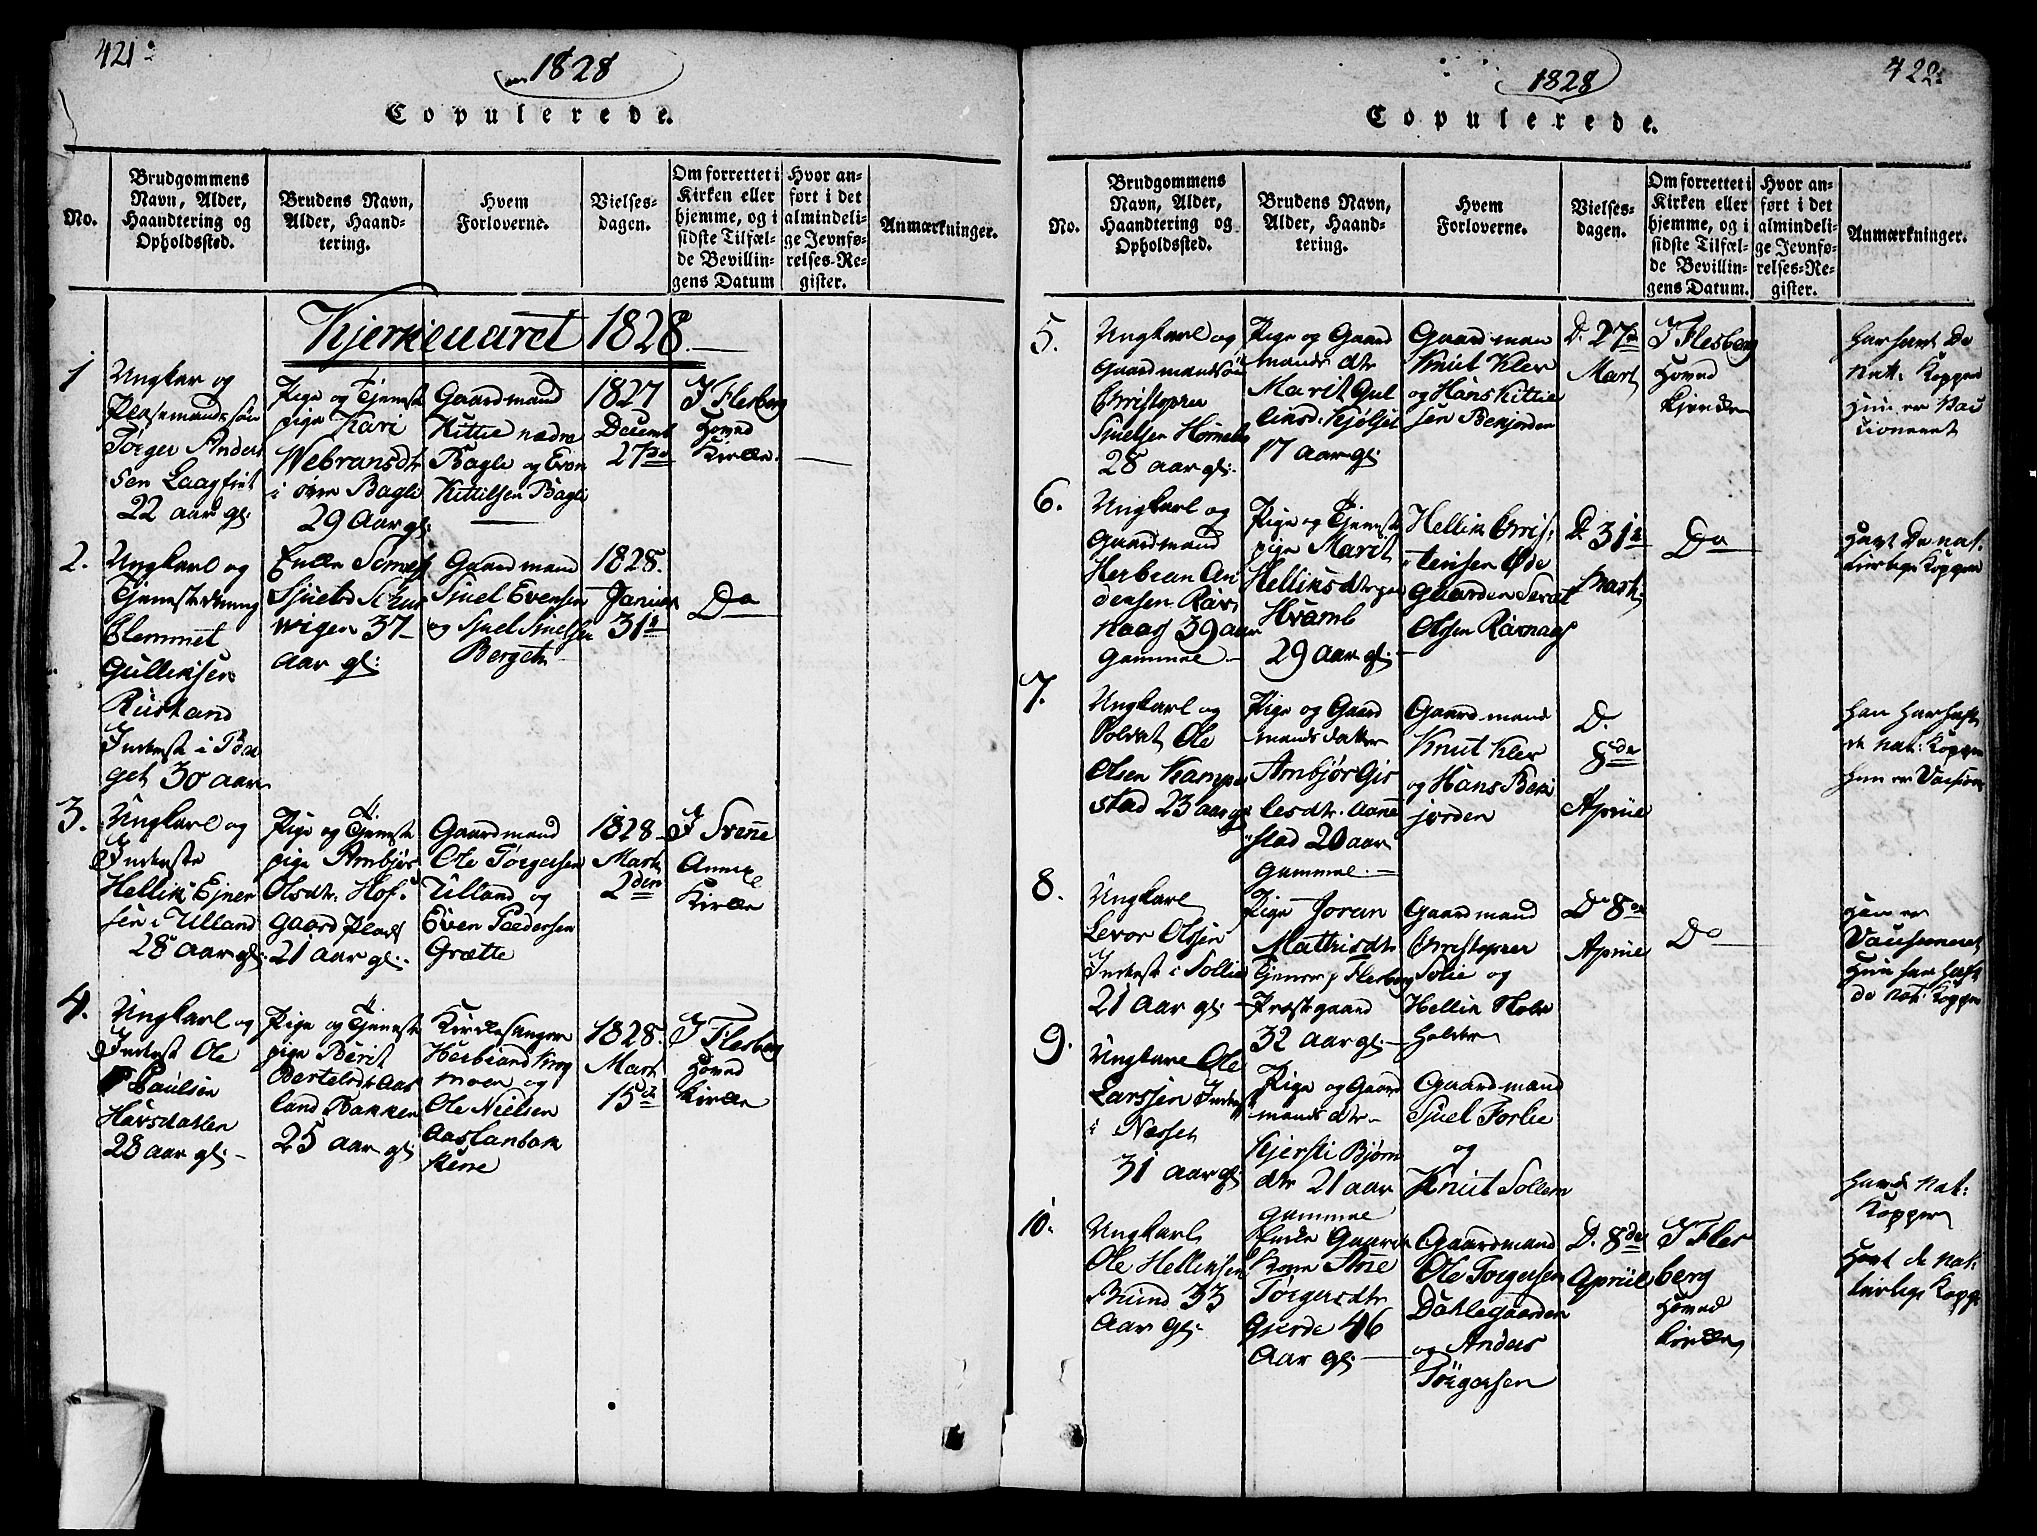 421.
1828
Copulerede.
No.
Brudgommens
Navn, Alder,
Haandtering og
Opholdssted.
Brudens Navn,
Alder, Haand-
tering.
Hvem
Forloverne.
Vielses-
dagen.
Om forrettet i
Kirken eller
hjemme, og i
sidste Tilfæl-
de Bevillin-
gens Datum
Hvor an-
ført i det
almindeli-
ge Jevnfø-
relses-Re-
gister.
Anmærkninger.
Kjerkeuaret 1828.
1
Ungkar og
Pladsemands søn
Torger Anders
sen Laagfrit
22 aar gl:
Pige og Tjeneste
pige Kari
Webransdtr
i øvre Bagli
29 Aar gl:
Gaardmand
Kittil nedre
Bagli og Even
Kittilsen Bagli
1827
Decemb
27de
I Flesberg
Hoved
Kirke.
2.
Ungkarl og
Tjenestedreng
Clemmet
Gulliksen
Rustand
Inderst i Ber
get 30 aar
Enke
Sjulsd
37
aar gl:
Gaardmand
Sjuel Evensen
og Sjuel Sjuelsen
Berget
1828.
Januar
31te
Do
3.
Ungkarl og
Inderste
Hellik Ejner
sen i Ulland
28 aar gl:
Pige og Tjeneste
pige Ambjør
Olsdt. Hof
gaard Plads
21 aar gl:
Gaardmand
Ole Torgersen
Ulland og
Even Pedersen
Grætte
1828
Marts
2den
I Svenne
Annex
Kirke
4.
Ungkarl og
Inderst Ole
Paulsen
Havsdalen
28 aar gl:
Pige og Tjeneste
pige Berit
Bertelsdt Aas
land Bakken
25 aar gl:
Kirkesanger
Herbrand Krog
moen og
Ole Nielsen
Aaslanbak
kene
1828.
Marts
15de
I Flesberg
Hoved
Kirke
422.
1828
Copulerede.
No.
Brudgommens
Navn, Alder,
Haandtering og
Opholdssted.
Brudens Navn,
Alder, Haand-
tering.
Hvem
Forloverne.
Vielses-
dagen.
Om forrettet i
Kirken eller
hjemme, og i
sidste Tilfæl-
de Bevillin-
gens Datum.
Hvor an-
ført i det
almindeli-
ge Jevnfø-
relses-Re-
gister.
Anmærkninger.
5.
Ungkarl og
Gaardmandsøn
Christopher
Sjuelsen
28 aar gl:
Pige og Gaard
mands dtr
Marit Gul
liksd: Kjølset
17 aar gl:
Gaardman
Knut Klev
og Hans Kittil
sen Bekjorden
D. 27de
Mart
I Flesberg
Hoved
Kjerke
har havt De
Natt: Kopper
Hun er Vac
cioneret
6.
Ungkarl og
Gaardmand
Herbran An
densen Rav
naas 39 aar
Gammel
Pige og Tjeneste
pige Marit
Helliksdtr
Hvamb
29 Aar gl:
Hellik Chris
tensen Øde
Gaarden
Olsen Ravnaas
D. 31te
Marts
Do
Havt De nat
turlige Kopper
7.
Ungkarl og
Soldat Ole
Olsen Kamp
stad 23 aar gl
Pige og Gaard
mands datter
Ambjør Gis
lesdtr. Aanne
stad 20 aar
Gammel
Gaardmand
Knut Klev
og Hans Bek
jorden
D.
8de
Apriil
Han har havt
de Nat: Kopper
Hun er Vacsione
8.
Ungkarl
Levor Olsen
Inderst i Sollie
21 Aar gl:
Pige Joran
Mathisdtr
Tjener p Flesberg
Præstgaard
32 aar gl:
Gaardmand
Christopher
Solie og
Hellik
D. 8de
Apriil
Do
Han er
Vacsineret
Hun har havt
de Nat: Kopper
9.
Ungkarl Ole
Larssen Inderst
i Næsset
31 aar gl:
Pige og Gaard
mands dtr
Kjersti Bjørn
dtr 21 aar
Gammel
Gaardmand
Sjuel Forlie
og
Knut Sollem
Havt Nat:
Kopper
10.
Ungkarl
Ole Helliksen
Brund 33
Aar gl:
Enke Gaard
Kone Anne
Torgersdtr
Gjerde 46
Aar gl:
Gaardmand
Ole Torgersen
Dahlegaarden
og Anders
Törgersen
D. 8de
Apriil
I Fles
berg
Hoved
Kirke
Havt de nat
turlige Kopp